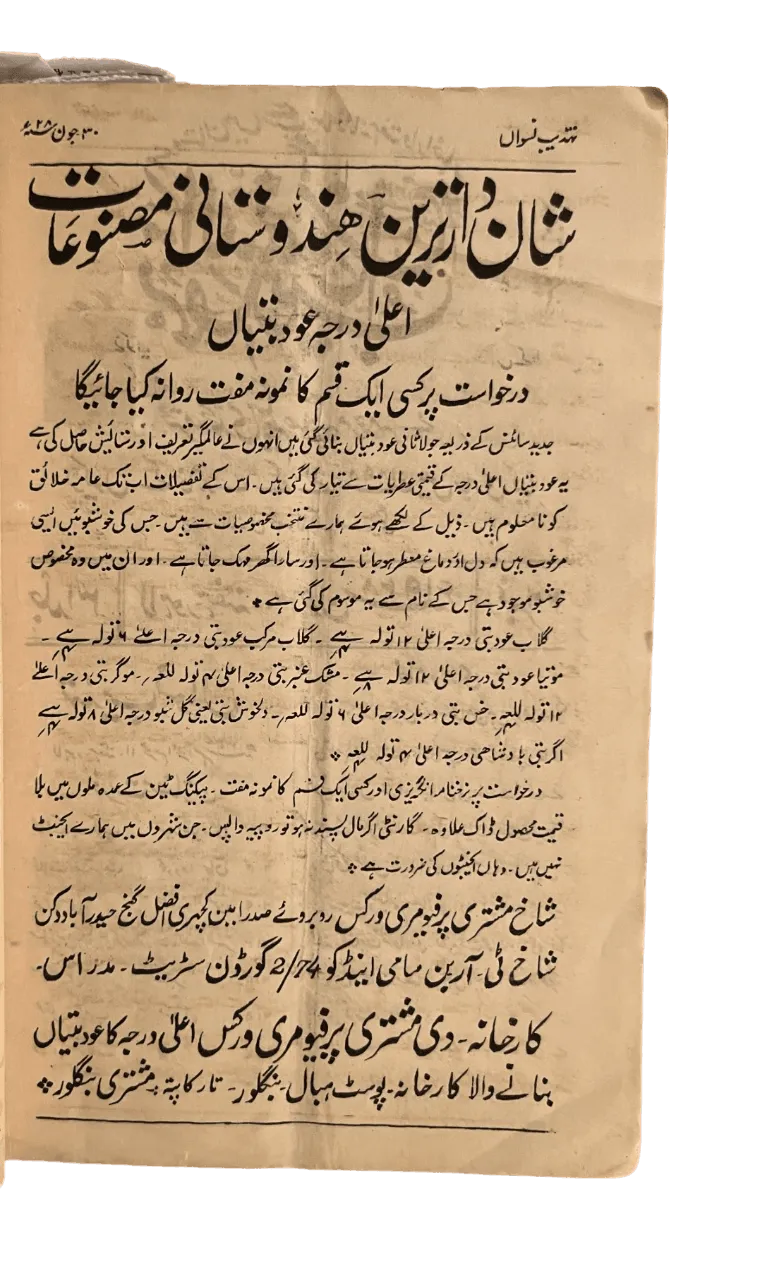 تہذیب نسواں
۳۰ جون ۲۸ء
شاندار ترین ہندوستانی مصنوعات
اعلیٰ درجہ عود بتیاں
درخواست پر کسی ایک قسم کا نمونہ مفت روانہ کیا جائیگا
جدید سائنس کے ذریعہ جو لاثانی عود بتیاں بنائی گئی ہیں انہوں نے عالمگیر تعریف اور ستائیش حاصل کی ہے
یہ عود بتیاں اعلیٰ درجہ کے قیمتی عطریات سے تیار کی گئی ہیں۔ اس کے تفصیلات اب تک عامہ خلائق
کو نامعلوم ہیں۔ ذیل کے لکھے ہوئے ہمارے منتخب مخصوصیات سے ہیں۔ جس کی خوشبوئیں ایسی
مرغوب ہیں کہ دل اور دماغ معطر ہوجاتا ہے۔ اور سارا گھر مہک جاتا ہے۔ اور ان میں وہ مخصوص
خوشبو موجود ہے جس کے نام سے یہ موسوم کی گئی ہے
گلاب عود بتی درجہ اعلیٰ ۱۲ تولہ ۔ گلاب مرکب عود بتی درجہ اعلےٰ ۶ تولہ ۔
موتیا عود بتی درجہ اعلیٰ ۱۲ تولہ ۔ مشک عنبر بتی درجہ اعلیٰ ۴ تولہ للعہ؍۔ موگر بتی درجہ اعلےٰ
۱۲ تولہ للعہ۔ خس بتی دربار درجہ اعلیٰ ۶ تولہ للعہ؍۔ دلخوش بتی یعنی گل شبو درجہ اعلیٰ ۸ تولہ
اگر بتی بادشاہی درجہ اعلیٰ ۴ تولہ للعہ
درخواست پر نرخنامہ انگریزی اور کسی ایک قسم کا نمونہ مفت۔ پیکنگ ٹین کے عمدہ ملوں میں بلا
قیمت محصول ڈاک علاوہ۔ گارنٹی اگر مال پسند نہ ہو تو روپیہ واپس۔ جن شہروں میں ہمارے ایجنٹ
نہیں ہیں۔ وہاں ایجنٹوں کی ضرورت ہے
شاخ مشتری پرفیومری ورکس روبروئے صدر امین کچہری افضل گنج حیدرآباد دکن
شاخ ٹی۔ آرین سامی اینڈکو 2/74 گورڈن سٹریٹ۔ مدراس۔
کارخانہ۔ دی مشتری پرفیومری ورکس اعلیٰ درجہ کا عود بتیاں
بنانے والا کارخانہ۔ پوسٹ ہبال۔ بنگلور۔ تار کا پتہ۔ مشتری بنگلور